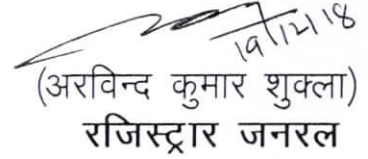 19/12/18
(अरविन्द कुमार शुक्ला)
रजिस्ट्रार जनरल